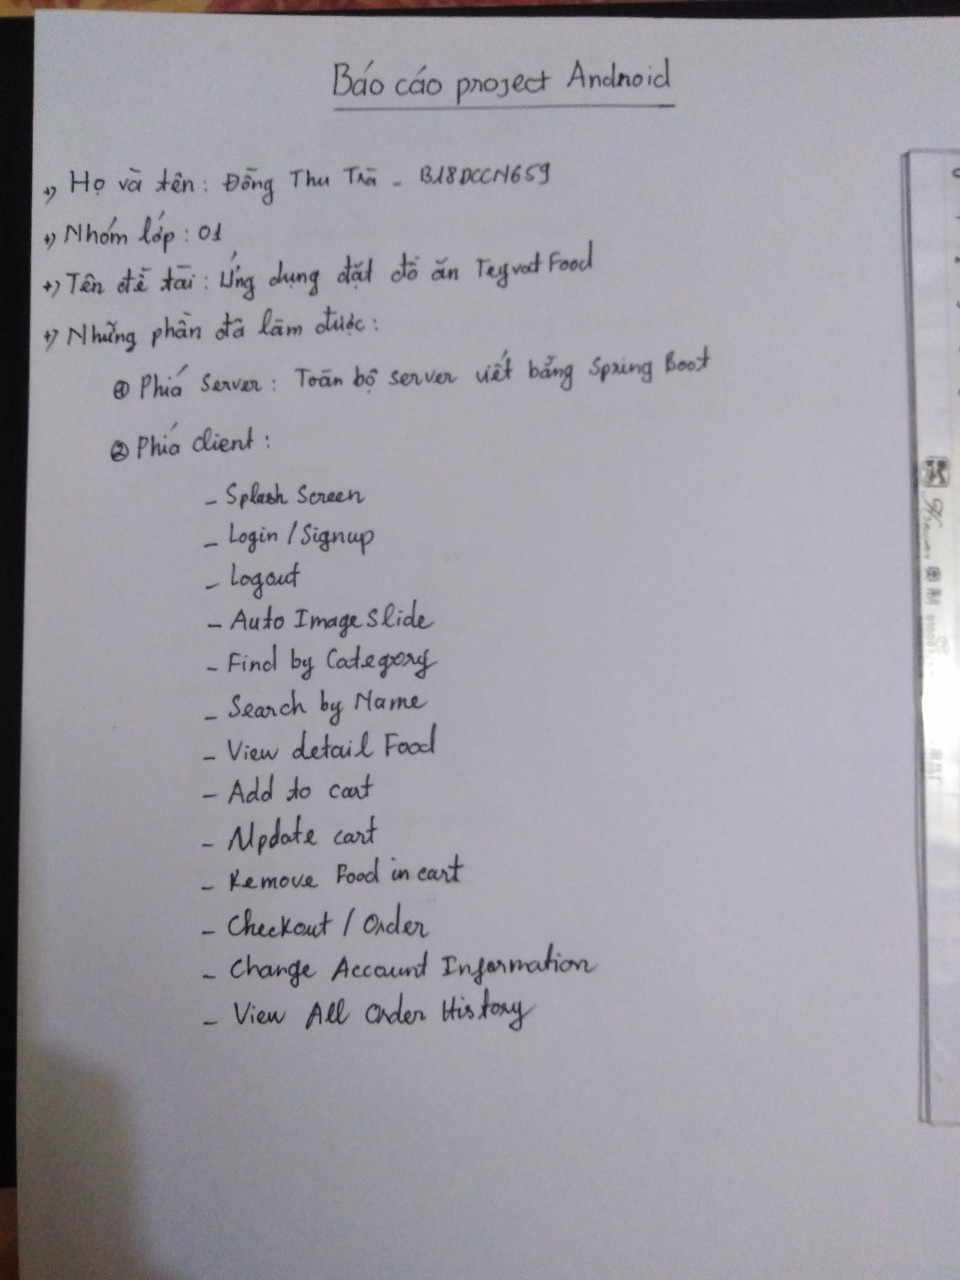 Báo cáo project Android
+, Họ và tên: Đồng Thu Trà - B18DCCN659
+, Nhóm lớp: 01
+, Tên đề tài: Ứng dụng đặt đồ ăn Teyvat Food
+, Những phần đã làm được:
① Phía Server: Toàn bộ server viết bằng Spring Boot
② Phía client:
- Splash Screen
- Login / Signup
- Logout
- Auto Image Slide
- Find by Category
- Search by Name
- View detail Food
- Add to cart
- Update cart
- Remove Food in cart
- Checkout / Order
- Change Account Information
- View All Order History